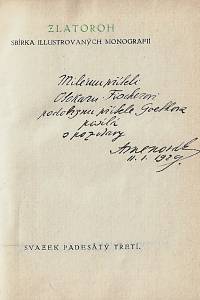 ZLATOROH
SBÍRKA ILLUSTROVANÝCH MONOGRAFIÍ
Milému příteli
Otokaru Fischerovi
podobiznu přítele Goethova
posílá
s pozdravy
11. I. 1929.
SVAZEK PADESÁTÝ TŘETÍ.